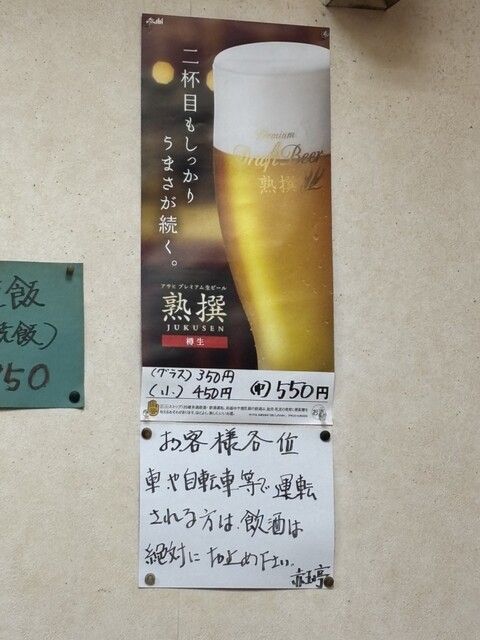 Asahi
二杯目もしっかり
うまさが続く。
Premium
Draft Beer
熟撰
アサヒ プレミアム生ビール
熟撰
JUKUSEN
樽生
(グラス) 350円
(小) 450円
(中) 550円
飯
飯)
50
お客様各位
車や自転車等で運転
される方は飲酒は
絶対にお止め下さい。